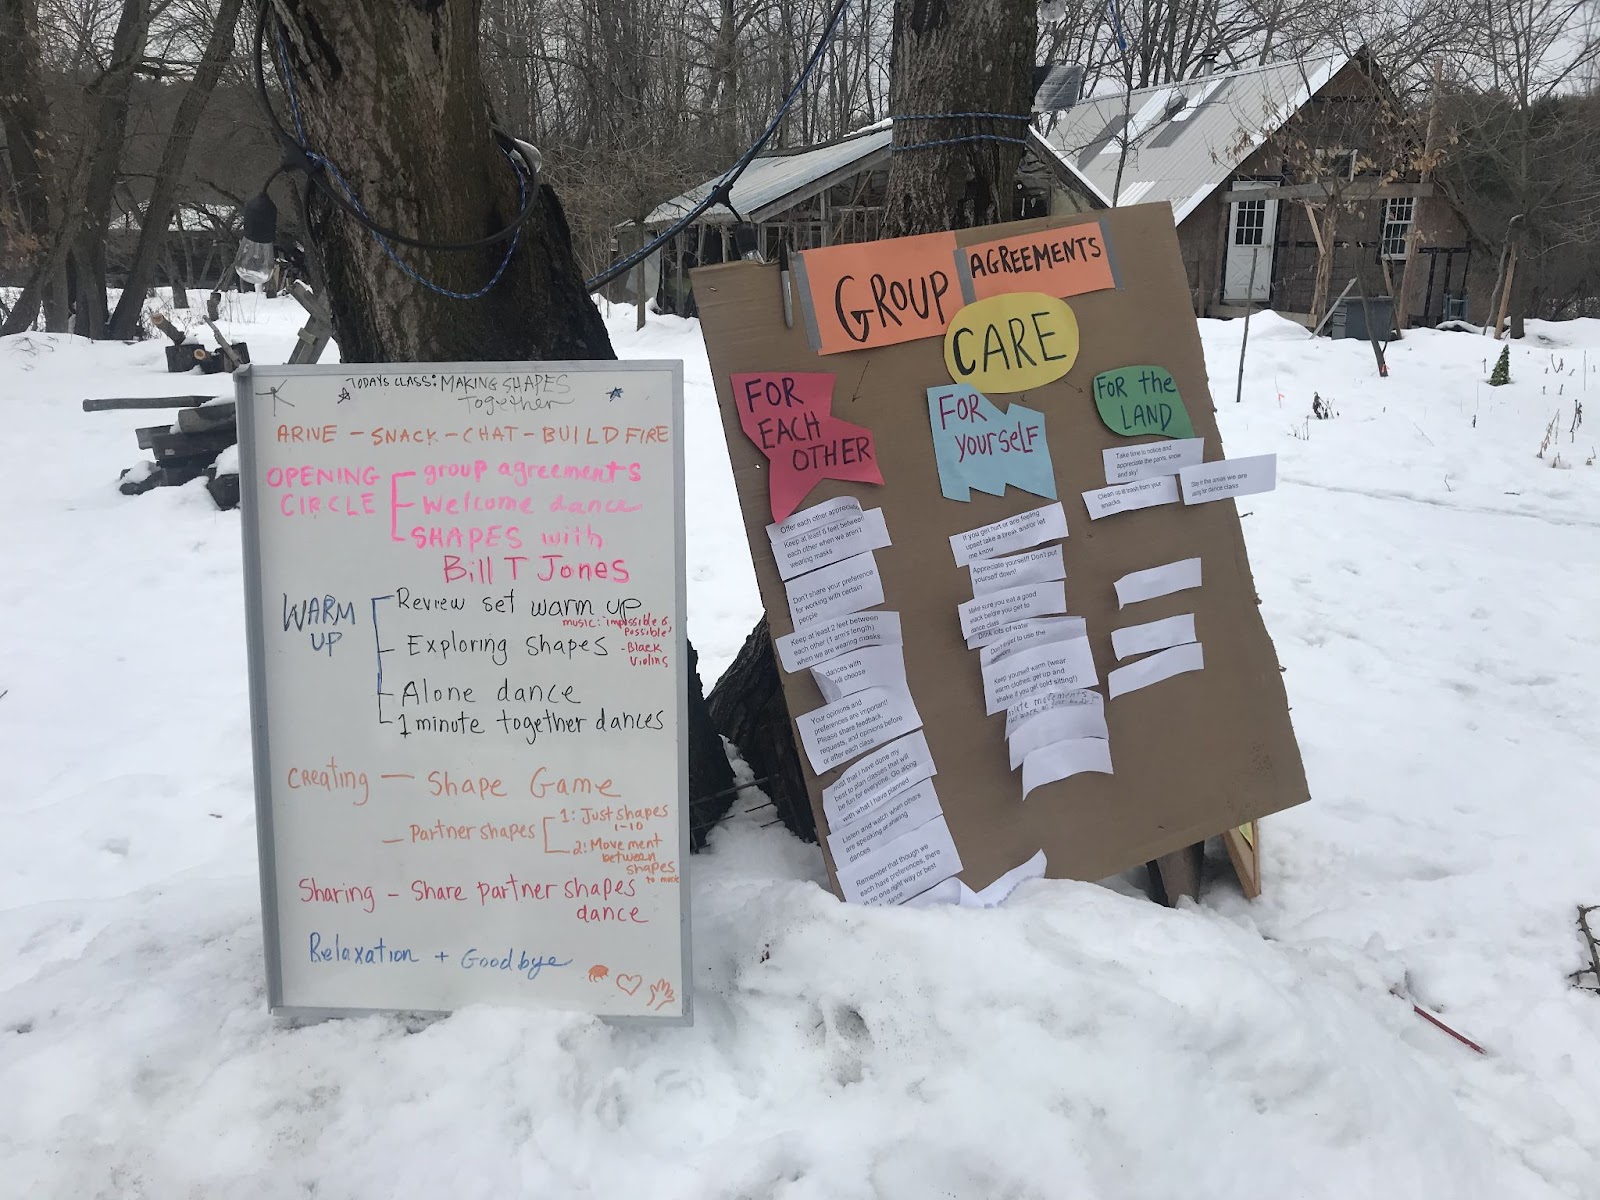 TODAYS CLASS: MAKING SHAPES
Together
ARIVE - SNACK - CHAT - BUILD FIRE
OPENING CIRCLE
group agreements
Welcome dance
SHAPES with
Bill T Jones
WARM UP
Review set warm up
music:
Possible
- Black
Violins
Exploring Shapes
Alone dance
1 minute together dances
Creating — Shape Game
— Partner shapes
1: Just shapes
1-10
2: Movement
between
shapes
to music
Sharing - Share partner shapes
dance
Relaxation + Goodbye
GROUP AGREEMENTS
CARE
FOR
EACH
OTHER
Offer each other appreciate
Keep at least 6 feet between
each other when we aren't
wearing masks
Don't share your preference
for working with certain
people
Keep at least 2 feet between
each other (1 arm's length)
when we are wearing masks
dances with
will choose
Your opinions and
preferences are important!
Please share feedback,
requests, and opinions before
or after each class
that I have done my
best to plan classes that will
be fun for everyone. Go along
with what I have planned
Listen and watch when others
are speaking or sharing
dances
Remember that though we
each have preferences, there
is no one right way or best
dance.
FOR
yourself
If you get hurt or are feeling
upset take a break and/or let
me know
Appreciate yourself! Don't put
yourself down!
Make sure you eat a good
snack before you get to
dance class
Drink lots of water
Don't forget to use the
Keep yourself warm (wear
warm clothes, get up and
shake if you get cold sitting!)
movements
FOR the
LAND
Take time to notice and
appreciate the plants, snow
and sky!
Clean up all trash from your
snacks
Stay in the areas we are
using for dance class